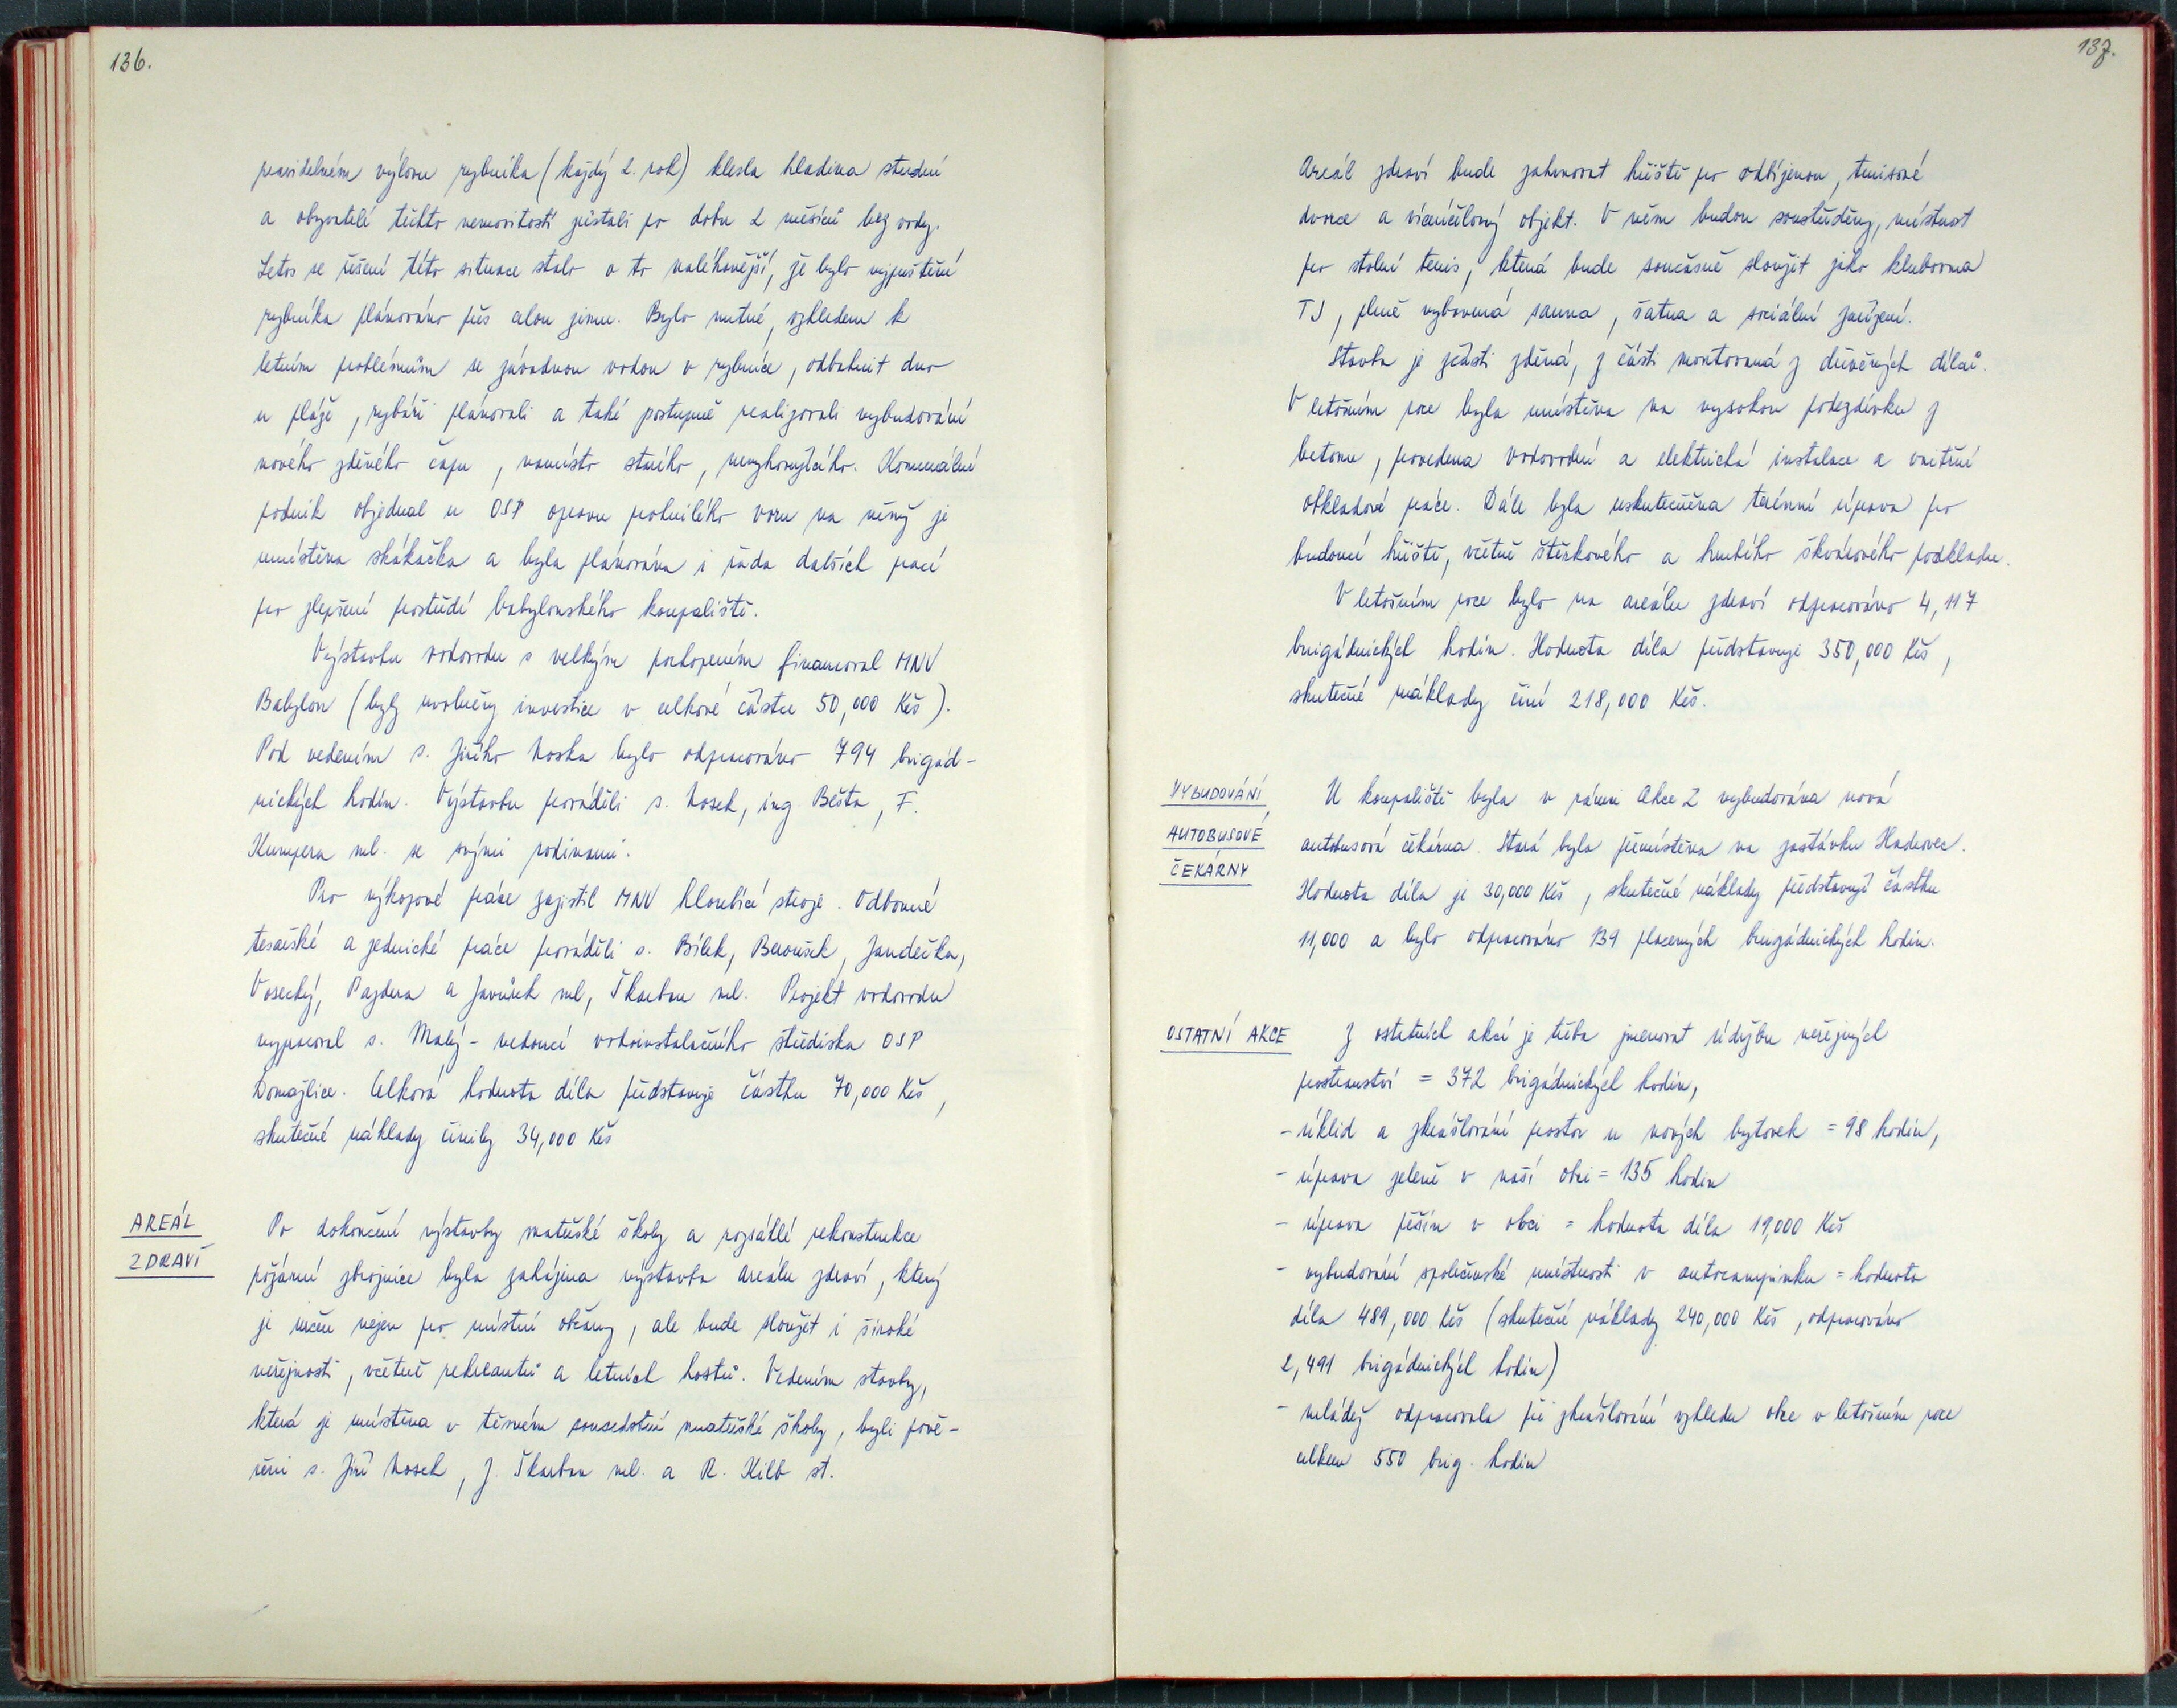 136.
pravidelném výlovu rybníka (každý 2. rok) klesla hladina studní
a obyvatelé těchto nemovitostí zůstali po dobu 2 měsíců bez vody.
Letos se řešení této situace stalo o to naléhavější, že bylo vypuštění
rybníka plánováno přes celou zimu. Bylo nutné, vzhledem k
letním problémům se závadnou vodou v rybníce, odbahnit dno
u pláže, rybáři plánovali a také postupně realizovali vybudování
nového zděného čapu, namísto starého, nevyhovujícího. Komunální
podnik objednal u OSP opravu prohnilého voru na němž je
umístěna skákačka a byla plánována i řada dalších prací
pro zlepšení prostředí babylonského koupaliště.
Výstavbu vodovodu s velkým pochopením financoval MNV
Babylon (byly uvolněny investice v celkové částce 50,000 Kčs).
Pod vedením s. Jiřího Noska bylo odpracováno 794 brigád-
nických hodin. Výstavbu prováděli s. Nosek, ing. Bešta, F.
Kumpera ml. se svými rodinami.
Pro výkopové práce zajistil MNV hloubící stroje. Odborné
tesařské a zednické práce prováděli s. Bílek, Beroušek, Jandečka,
Vosecký, Pajdera a Javůrek ml, Škarban ml. Projekt vodovodu
vypracoval s. Malý - vedoucí vodoinstalačního střediska OSP
Domažlice. Celková hodnota díla představuje částku 70,000 Kčs,
skutečné náklady činily 34,000 Kčs
AREÁL
ZDRAVÍ
Po dokončení výstavby mateřské školy a rozsáhlé rekonstrukce
požární zbrojnice byla zahájena výstavba areálu zdraví, který
je určen nejen pro místní občany, ale bude sloužit i široké
veřejnosti, včetně rekreantů a letních hostů. Vedením stavby,
která je umístěna v těsném sousedství mateřské školy, byli pově-
řeni s. Jiří Nosek, J. Škarban ml. a R. Kilb st.
137.
Areál zdraví bude zahrnovat hřiště pro odbíjenou, tenisové
dvorce a víceúčelový objekt. V něm budou soustředěny, místnost
pro stolní tenis, která bude současně sloužit jako klubovna
TJ, plně vybavená sauna, šatna a sociální zařízení.
Stavba je zčásti zděná, z části montovaná z dřevěných dílců.
V letošním roce byla umístěna na vysokou podezdívku z
betonu, provedena vodovodní a elektrická instalace a vnitřní
obkladové práce. Dále byla uskutečněna terénní úprava pro
budoucí hřiště, včetně štěrkového a hrubého škvárového podkladu.
V letošním roce bylo na areálu zdraví odpracováno 4,117
brigádnických hodin. Hodnota díla představuje 350,000 Kčs,
skutečné náklady činí 218,000 Kčs.
VYBUDOVÁNÍ
AUTOBUSOVÉ
ČEKÁRNY
U koupaliště byla v rámci Akce Z vybudována nová
autobusová čekárna. Stará byla přemístěna na zastávku Hadrovec.
Hodnota díla je 30,000 Kčs, skutečné náklady představují částku
11,000 a bylo odpracováno 139 placených brigádnických hodin.
OSTATNÍ AKCE
Z ostatních akcí je třeba jmenovat údržbu veřejných
prostranství = 372 brigádnických hodin,
- úklid a zkrášlování prostor u nových bytovek = 98 hodin,
- úprava zeleně v naší obci = 135 hodin
- úprava pěšin v obci = hodnota díla 19,000 Kčs
- vybudování společenské místnosti v autocampinku = hodnota
díla 489,000 Kčs (skutečné náklady 240,000 Kčs, odpracováno
2,491 brigádnických hodin)
- mládež odpracovala při zkrášlování vzhledu obce v letošním roce
celkem 550 brig. hodin